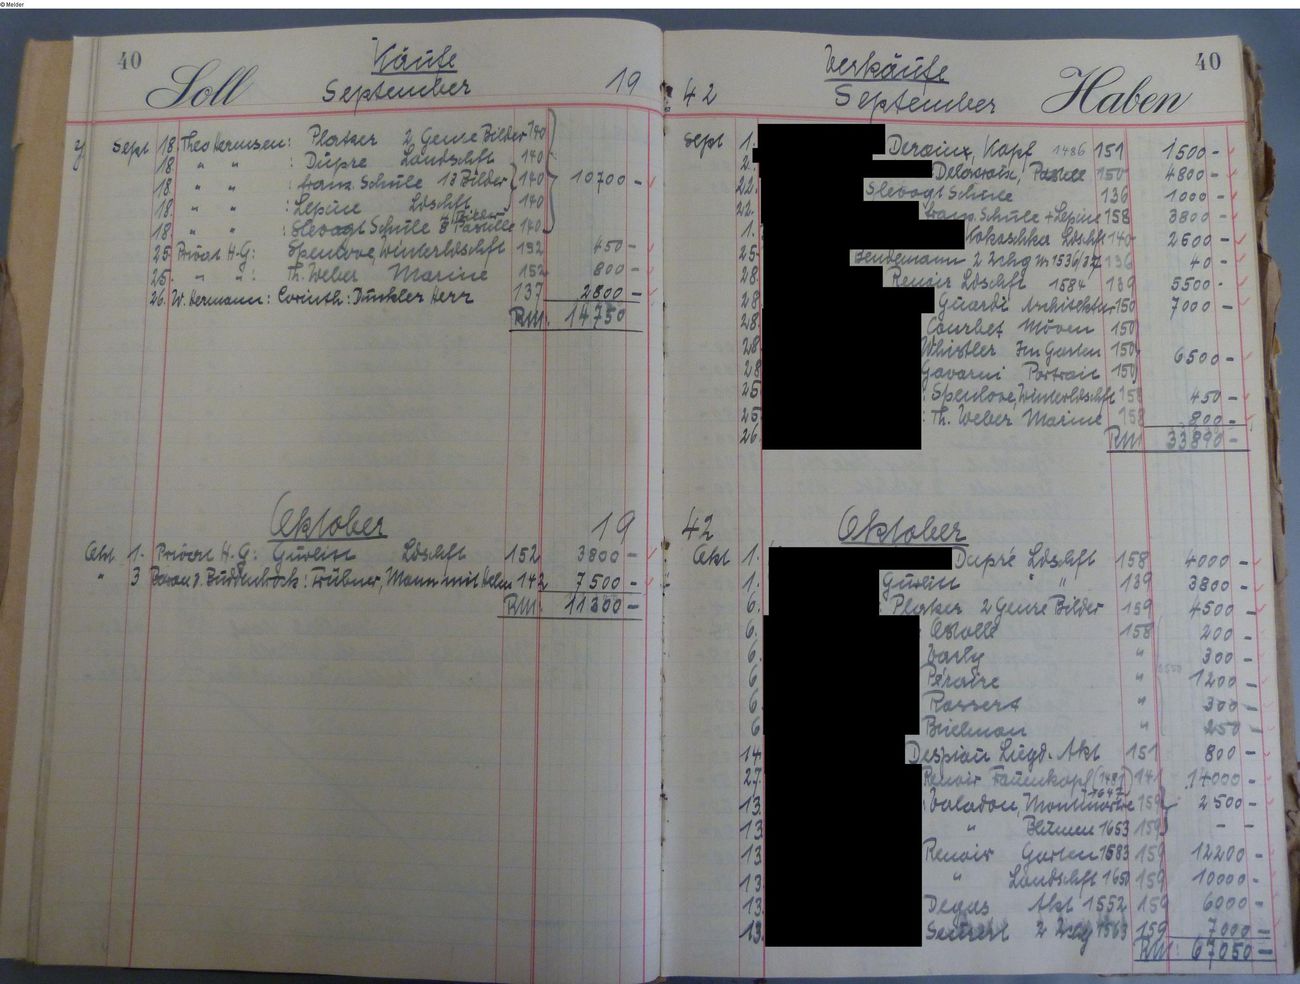 © Melder
40
Käufe
Soll September 19
y Sept 18. Theo Hermsen: Plasker 2 Genre Bilder 140
18. " " : Dupre Landschft 140
18. " " : franz. Schule 13 Bilder 140 10700 -
18. " " : Lepine Ldschft 140
18. " " : Slevogt Schule 140
25 Privat H-G: Spenlove, Winterldschft 152 450 -
25 " " : Th. Weber Marine 152 800 -
26. W. Hermann: Corinth: Dunkler Herr 137 2800 -
RM. 14750
Oktober 19
Okt 1. Privat H-G: Gurlin Ldschft 152 3800 -
" 3 Buddenbrock: Trübner, Mann mit Helm 142 7500 -
RM. 11300 -
40
Verkäufe
42 September Haben
Sept 1. Derainx, Kopf 1486 151 1500 -
2. Delacroix, 150 4800 -
22. Slevogt Schule 136 1000 -
22. franz. Schule + Lepine 158 3800 -
1. Kokoschka Ldschft 140 2600 -
25. Bendemann 2 Zchg 1536/37 136 40 -
28. Renoir Ldschft 1584 139 5500 -
28. Guardi Architektur 150 7000 -
28. Courbet Möven 150
28. Whistler Im Garten 150 6500 -
28 Gavarni Portrait 150
25 : Spenlove, Winterldschft 158 450 -
25 : Th. Weber Marine 158 800 -
26.
RM 33890 -
42 Oktober
Okt 1. Dupré Ldschft 158 4000 -
1. Gurlin " " 139 3800 -
6. : Plasker 2 Genre Bilder 159 4500 -
6. 158 200 -
6. " 300 -
6 " 1200 -
6 " 300 -
6 " 250 -
14 Despiau Liegd. Akt 151 800 -
27. Renoir Frauenkopf (1481) 141 14000 -
13. Valadon, Montmartre 1647 159 2500 -
13 " Blumen 1653 159 - -
13 Renoir Garten 1583 159 12200 -
13. " Landschft 1650 159 10000 -
13. Degas Akt 1552 159 6000 -
13. 2 Zchg 1563 159 7000 -
RM. 67050 -